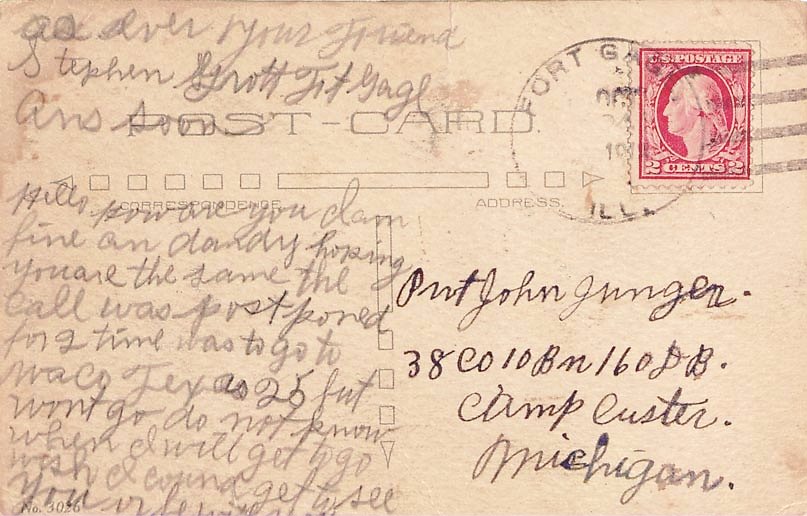 as ever your Friend
Stephen Grott Fit Gage
Ans soon
POST-CARD.
CORRESPONDENCE
ADDRESS.
FORT GAGE
OCT
1918
ILL.
U.S. POSTAGE
2 CENTS 2
Hello how are you I am
fine an dandy hoping
you are the same the
call was postponed
for 2 time was to go to
Waco Texas 25 but
wont go do not know
when I will get to go
wish I cound get to see
you
Pvt John Junger.
38 CO 10 Bn 160 D B.
Camp Custer.
Michigan.
No. 3026